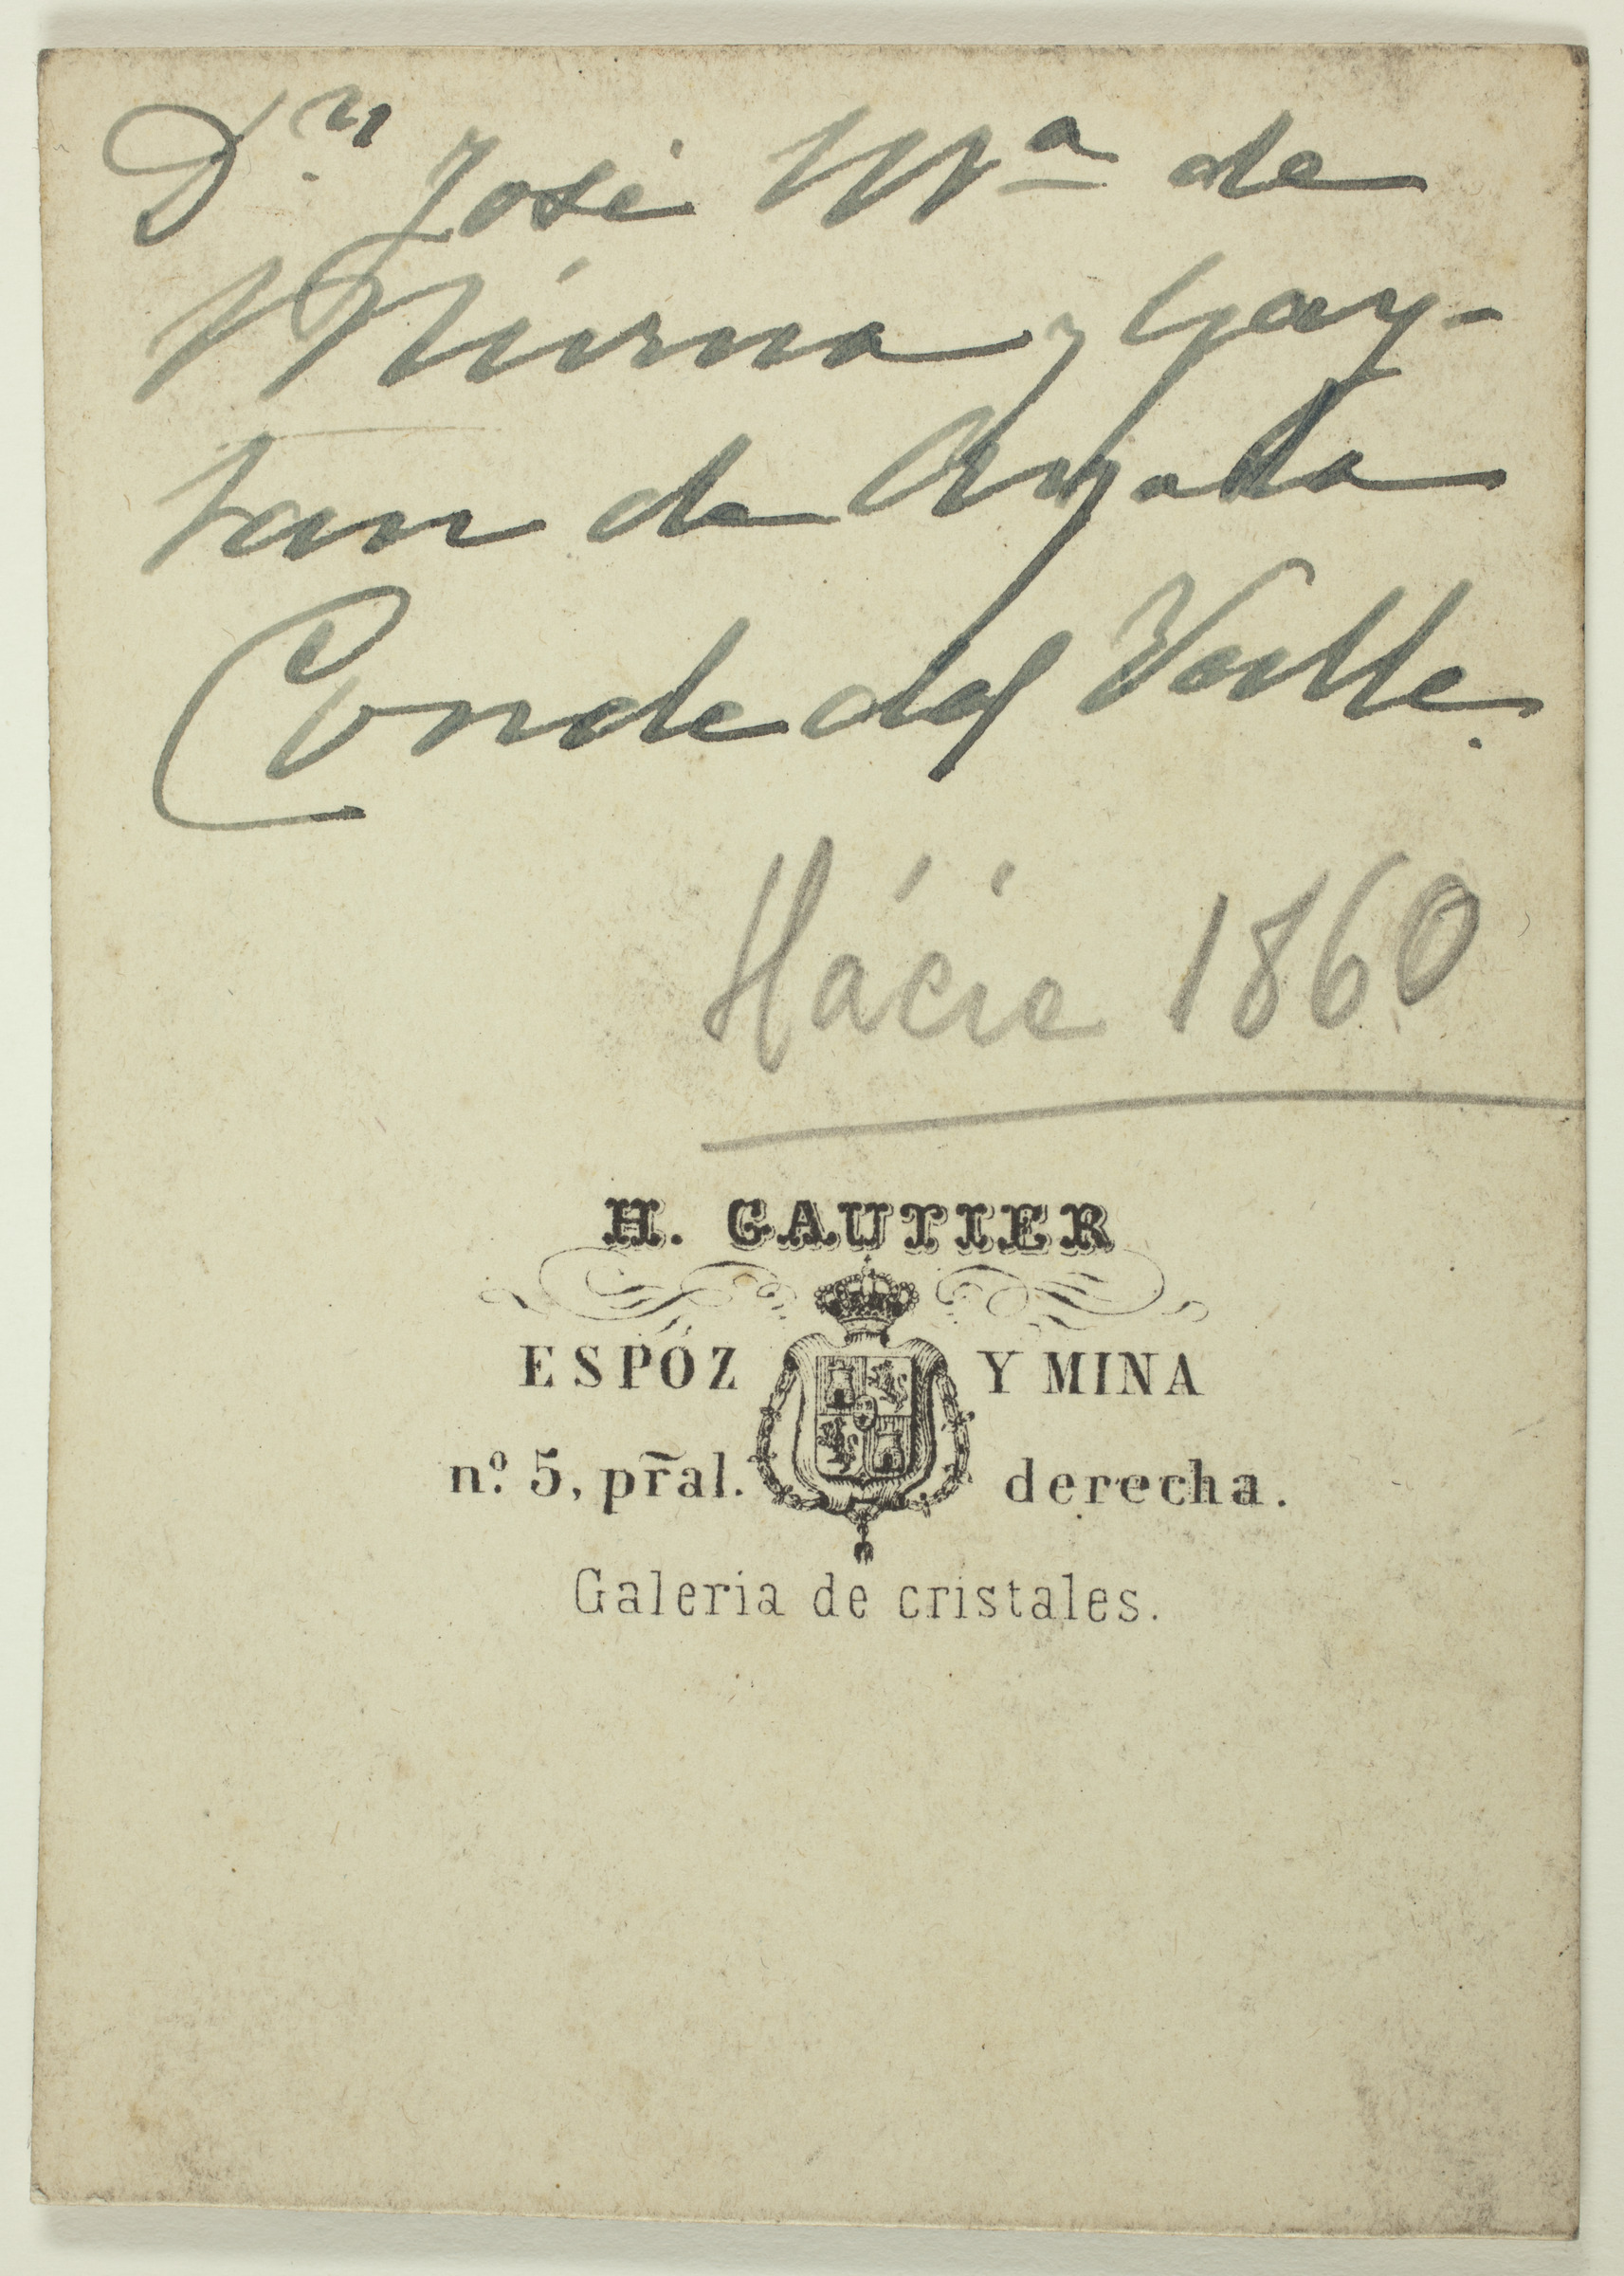 D.ⁿ José Mª de
Múrua y Gay-
tan de Ayala
Conde del Valle.
Hácia 1860
H. GAUTIER
ESPÓZ Y MINA
nº 5, pr̄al. derecha.
Galeria de cristales.